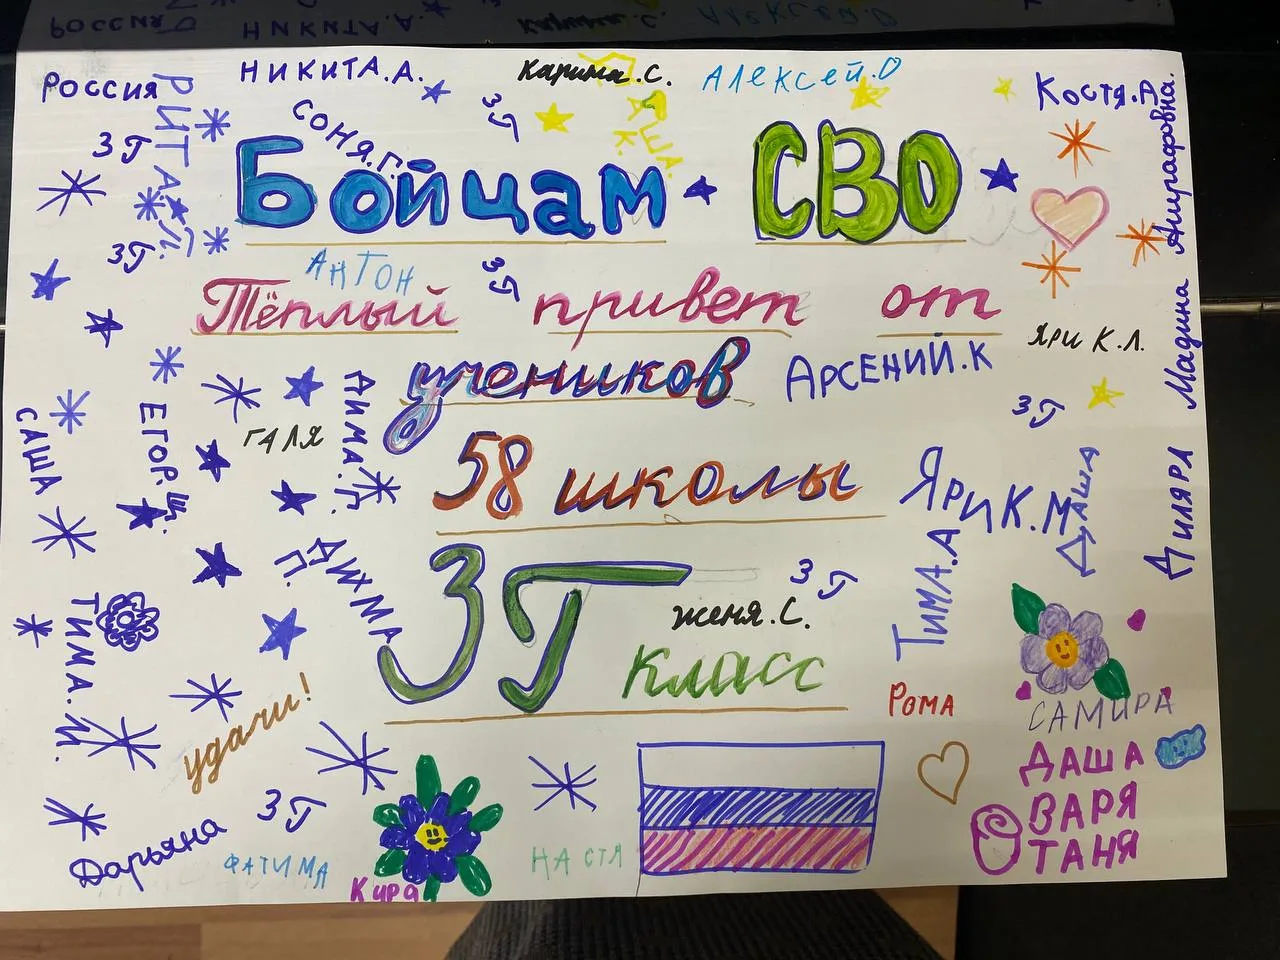 Россия
НИКИТА.А.
Карина.С.
АЛЕКСЕЙ.О
Костя.А
РИТА.Й.
СОНЯ.Г.
3Г
3Г
Бойцам СВО
3Г
АНТОН
3Г
Тёплый привет от
учеников
АРСЕНИЙ.К
ЯРИК.Л.
Мадина
Диляра
3Г
САША
ЕГОР.Щ.
ГАЛЯ
ДИМА.Г.
58 школы
ЯРИК.М
ДАША
ТИМА.А
П.
3Г
3Г
класс
женя.С.
ТИМА.И.
РОМА
САМИРА
удачи!
ДАША
ВАРЯ
ТАНЯ
3Г
Дарьяна
ФАТИМА
Кира
НАСТЯ